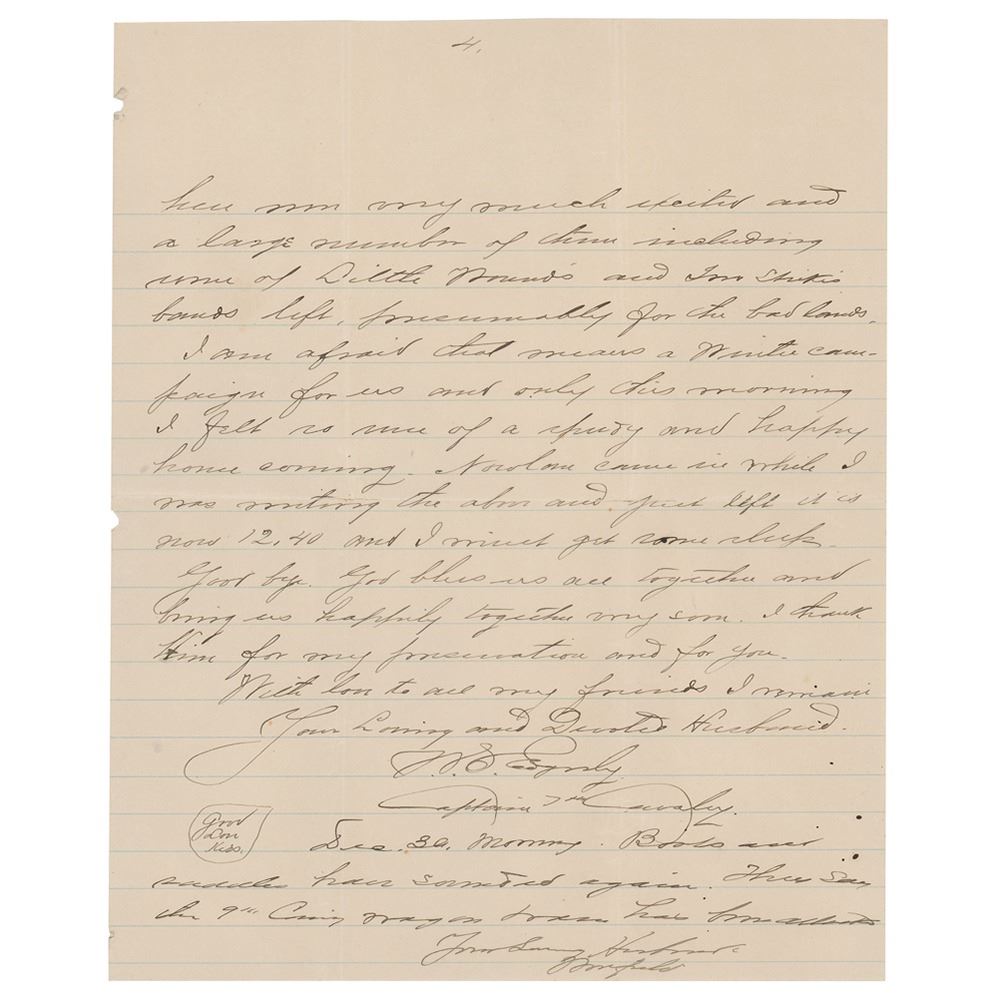 4.
here now very much excited and
a large number of them including
some of Little Wound's and Two Strike's
bands left, presumably for the bad lands.
I am afraid that means a Winter cam-
paign for us and only this morning
I felt so sure of a speedy and happy
home coming. Nowlan came in while I
was writing the above and just left it is
now 12.40 and I must get some sleep.
Good bye. God bless us all together and
bring us happily together very soon. I thank
Him for my preservation and for you.
With love to all my friends I remain
Your Loving and Devoted Husband.
W.S. Edgerly
Captain 7th Cavalry.
Good
Love
Kiss.
Dec. 30. Morning. Boots and
saddles have sounded again. They say
the 9th Cavy wagon train has been attacked
Your Loving Husband
Winfield